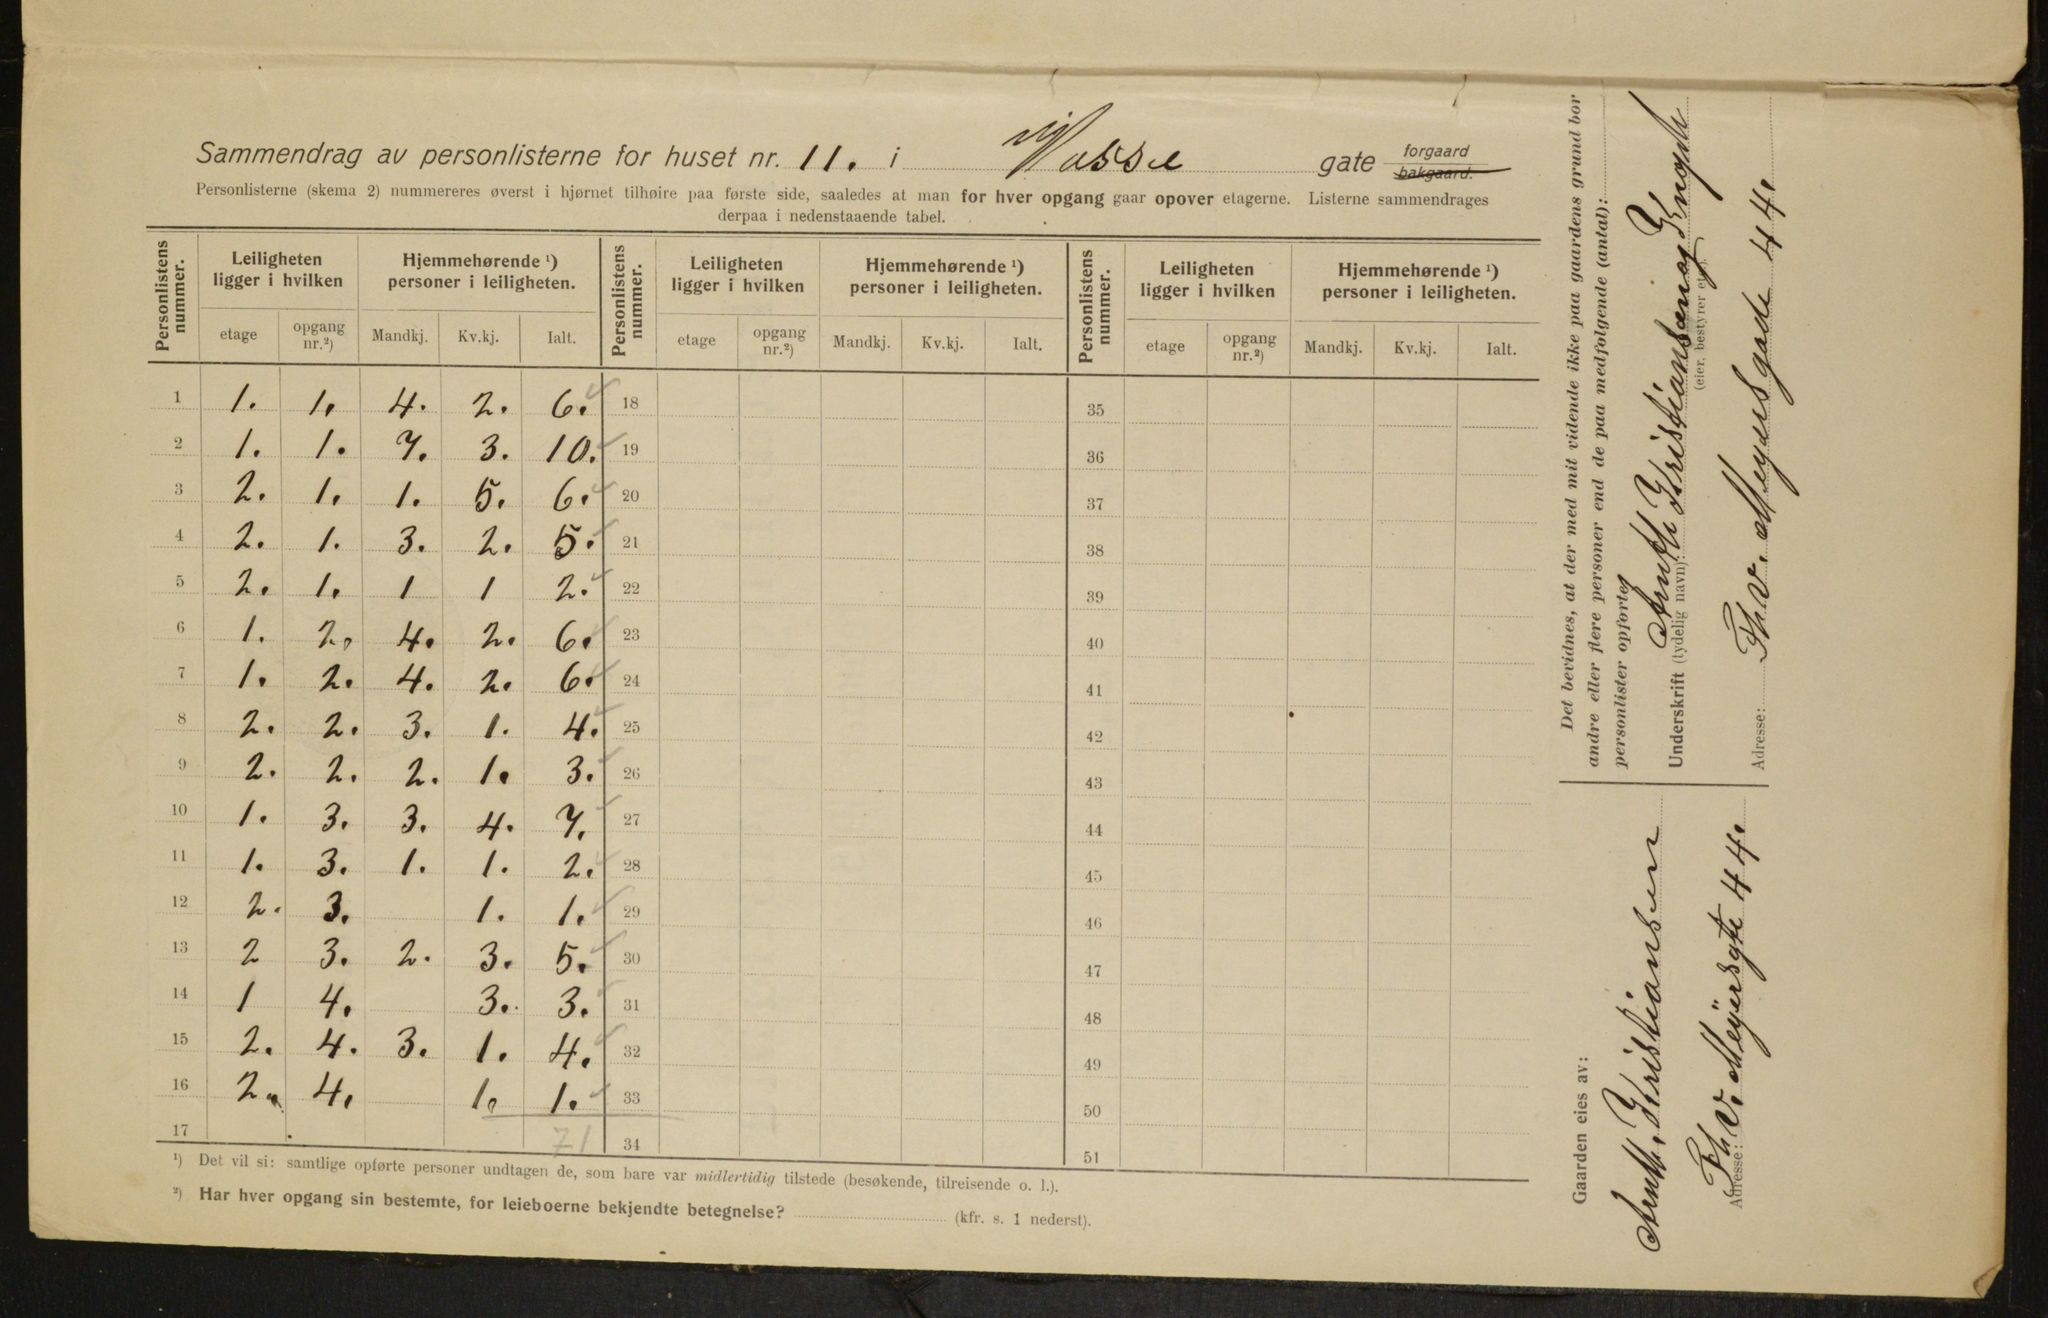 Sammendrag av personlisterne for huset nr. 11. i Vasse gate forgaard bakgaard.
Personlisterne (skema 2) nummereres øverst i hjørnet tilhøire paa første side, saaledes at man for hver opgang gaar opover etagerne. Listerne sammendrages
derpaa i nedenstaaende tabel.
Personlistens nummer. Leiligheten ligger i hvilken Hjemmehørende ¹) personer i leiligheten. Personlistens nummer. Leiligheten ligger i hvilken Hjemmehørende ¹) personer i leiligheten. Personlistens nummer. Leiligheten ligger i hvilken Hjemmehørende ¹) personer i leiligheten.
etage opgang nr.²) Mandkj. Kv.kj. Ialt. etage opgang nr.²) Mandkj. Kv.kj. Ialt. etage opgang nr.²) Mandkj. Kv.kj. Ialt.
1 1. 1. 4. 2. 6. 18 35
2 1. 1. 7. 3. 10. 19 36
3 2. 1. 1. 5. 6. 20 37
4 2. 1. 3. 2. 5. 21 38
5 2. 1. 1 1 2. 22 39
6 1. 2. 4. 2. 6. 23 40
7 1. 2. 4. 2. 6. 24 41
8 2. 2. 3. 1. 4. 25 42
9 2. 2. 2. 1. 3. 26 43
10 1. 3. 3. 4. 7. 27 44
11 1. 3. 1. 1. 2. 28 45
12 2. 3. 1. 1. 29 46
13 2 3. 2. 3. 5. 30 47
14 1 4. 3. 3. 31 48
15 2. 4. 3. 1. 4. 32 49
16 2. 4. 1. 1. 33 50
17 71 34 51
¹) Det vil si: samtlige opførte personer undtagen de, som bare var midlertidig tilstede (besøkende, tilreisende o. l.).
²) Har hver opgang sin bestemte, for leieboerne bekjendte betegnelse? (kfr. s. 1 nederst).
Det bevidnes, at der med mit vidende ikke paa gaardens grund bor
andre eller flere personer end de paa medfølgende (antal):
personlister opførte
Underskrift (tydelig navn): Anth Kristiansen
(eier, bestyrer etc.)
Adresse: Th. v. Meyersgade 44.
Gaarden eies av:
Anth. Kristiansen
Adresse: Th. v. Meyersgte 44.